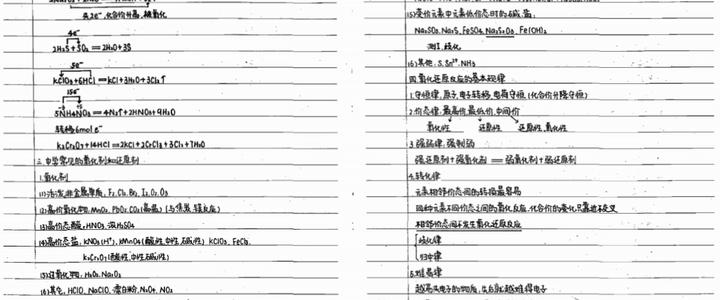 失2e⁻,化合价升高,被氧化
4e⁻
2H₂S+SO₂=2H₂O+3S
5e⁻
KClO₃+6HCl=KCl+3H₂O+3Cl₂↑
15e⁻
5NH₄NO₃=4N₂↑+2HNO₃+9H₂O
转移6mol e⁻
K₂Cr₂O₇+14HCl=2KCl+2CrCl₃+3Cl₂+7H₂O
三.中学常见的氧化剂和还原剂
1.氧化剂
(1)活泼非金属单质,F₂.Cl₂.Br₂.I₂.O₂.O₃
(2)高价氧化物,MnO₂.PbO₂.CO₂(高温)(与焦炭.镁反应)
(3)高价态酸,HNO₃.浓H₂SO₄
(4)高价态盐,KNO₃(H⁺).KMnO₄(酸性.中性.碱性) KClO₃.FeCl₃.
K₂Cr₂O₇(酸性.中性.碱性)
(5)过氧化物,H₂O₂.Na₂O₂
(6)其它,HClO.NaClO.漂白粉.N₂O₄.NO₂
(5)变价元素中元素低价态时的碱.盐,
Na₂SO₃.Na₂S.FeSO₄.Na₂S₂O₃.Fe(OH)₂
(6)其他,S.Sn²⁺.NH₃
四.氧化还原反应的基本规律
1.守恒律,原子.电子转移.电荷守恒(化合价升降守恒)
2.价态律,最高价 最低价.中间价
氧化性 还原性 还原性.氧化性
3.强弱律,强制弱
强还原剂+强氧化剂=弱氧化剂+弱还原剂
4.转化律
元素相邻价态间的转换最容易
同种元素不同价态之间的氧化反应,化合价的变化只靠近不交叉
相邻价态间不发生氧化还原反应
歧化律
归中律
5.难易律
越易失电子的物质,失后就越难得电子